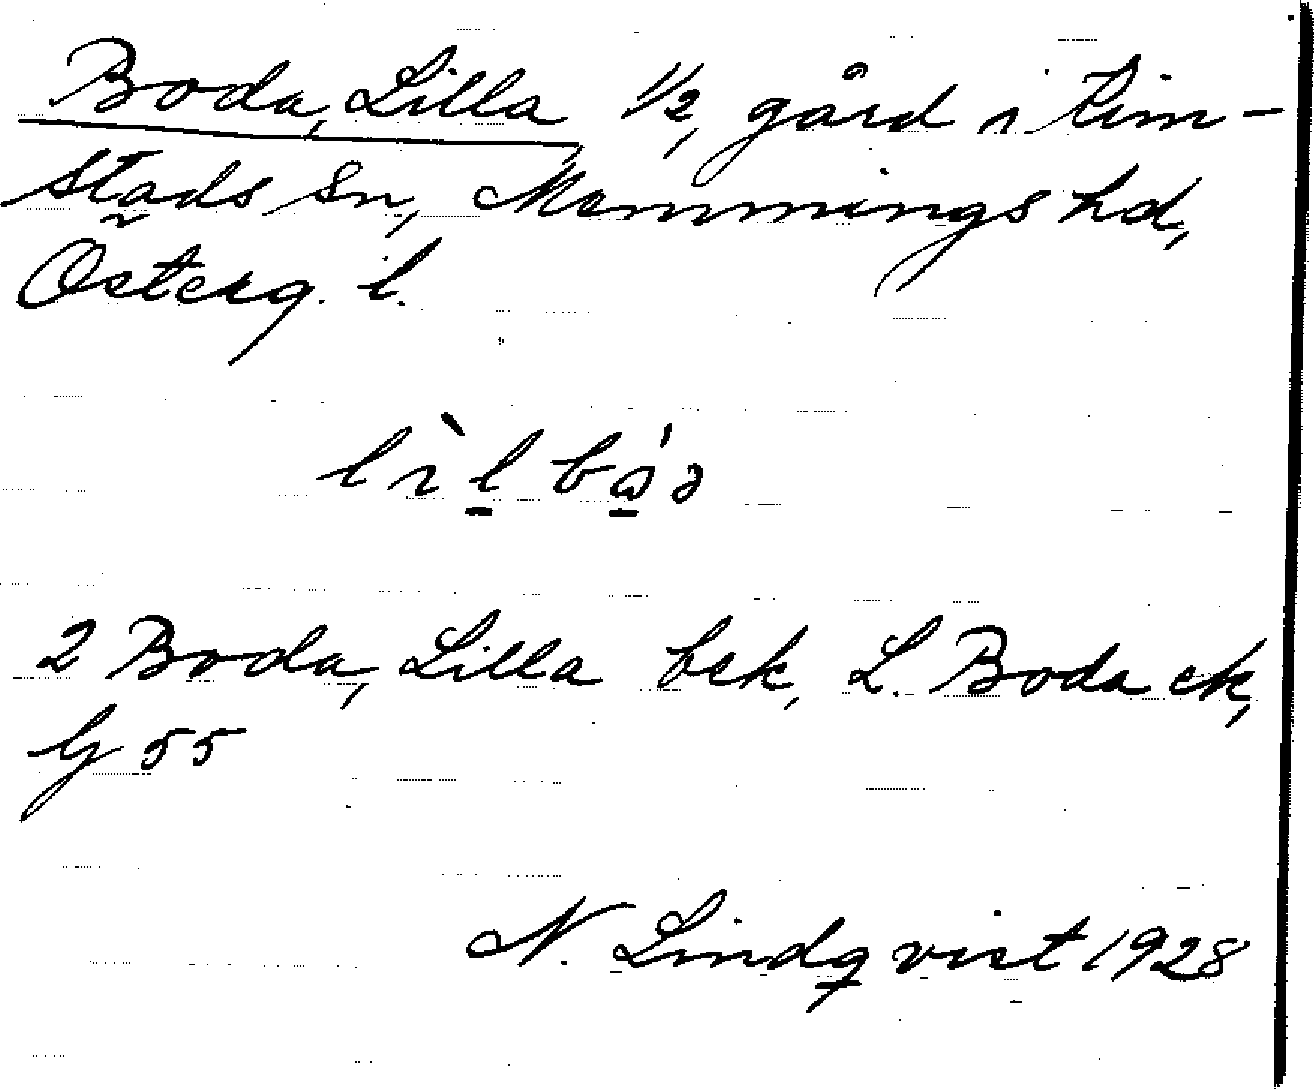 Boda, Lilla 1/2, gård i Kim-
stads sn, Memmings hd,
Österg. l.
lìl bó̀ə
2 Boda, Lilla bsk, L. Boda ek,
lg 55
N. Lindqvist 1928